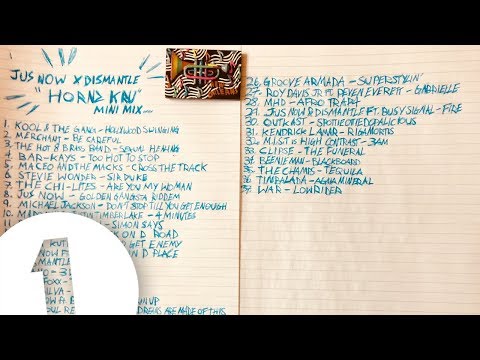 JUS NOW X DISMANTLE
"HORNZ KRU"
MINI MIX...
1. KOOL & THE GANG - HOLLYWOOD SWINGING
2. MERCHANT - BE CAREFUL
3. THE HOT 8 BRASS BAND - SEXUAL HEALING
4. BAR-KAYS - TOO HOT TO STOP
5. MACEO AND THE MACKS - CROSS THE TRACK
6. STEVIE WONDER - SIR DUKE
7. THE CHI-LITES - ARE YOU MY WOMAN
8. JUS NOW - GOLDEN GANGSTA RIDDEM
9. MICHAEL JACKSON - DON'T STOP TILL YOU GET ENOUGH
10. TIMBERLAKE - 4 MINUTES
SIMON SAYS
K ON D ROAD
GET ENEMY
IN D PLACE
FOXX
UN UP
DREAMS ARE MADE OF THIS
1
26. GROOVE ARMADA - SUPERSTYLIN'
27. ROY DAVIS JR FT. PEVEN EVERETT - GABRIELLE
28. MHD - AFRO TRAP 4
29. JUS NOW & DISMANTLE FT. BUSY SIGNAL - FIRE
30. OUTKAST - SPOTTIEOTTIEDOPALICIOUS
31. KENDRICK LAMAR - RIGAMORTIS
32. M.IST & HIGH CONTRAST - 3AM
33. CLIPSE - THE FUNERAL
34. BEENIEMAN - BLACKBOARD
35. THE CHAMPS - TEQUILA
36. TIMBALADA - AGUA MINERAL
37. WAR - LOWRIDER